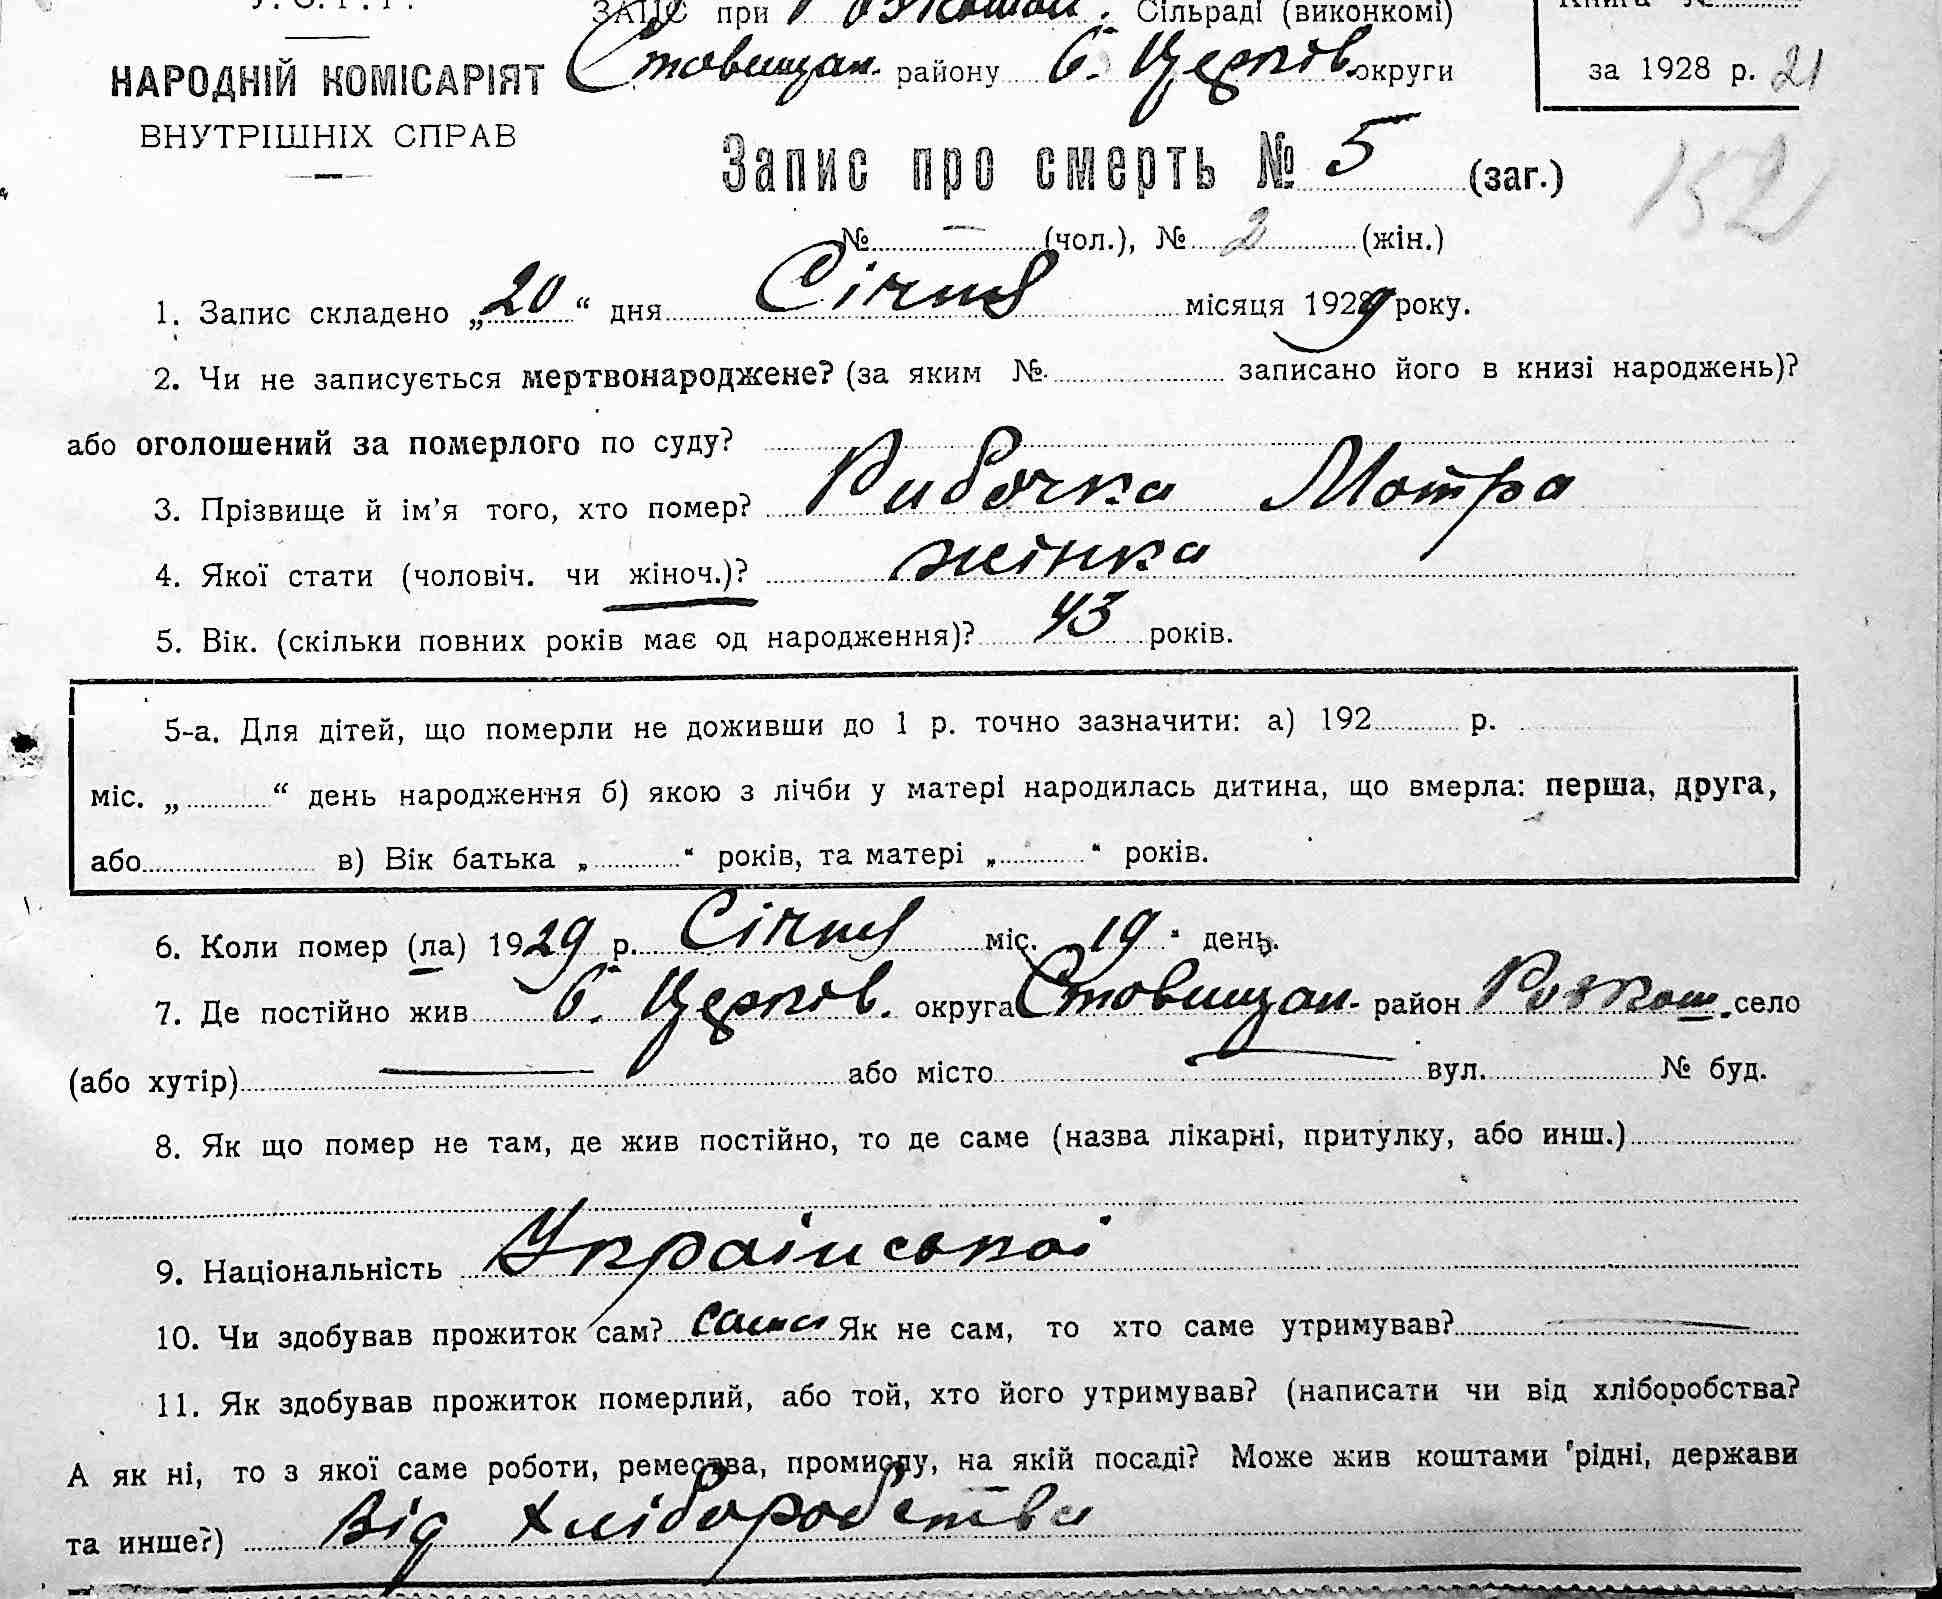 У. С. Р. Р.
ЗАПС при Розкошай. Сільраді (виконкомі)
Книга №
НАРОДНІЙ КОМІСАРІЯТ
Ставищан. району Б. Церків. округи
за 1928 р. 21
ВНУТРІШНІХ СПРАВ
Запис про смерть № 5 (заг.)
152
№ — (чол.), № 2 (жін.)
1. Запис складено „20“ дня Січня місяця 1929 року.
2. Чи не записується мертвонароджене? (за яким № записано його в книзі народжень)?
або оголошений за померлого по суду?
3. Прізвище й ім'я того, хто помер? Рибачка Мотра
4. Якої стати (чоловіч. чи жіноч.)? жінка
5. Вік. (скільки повних років має од народження)? 43 років.
5-а. Для дітей, що померли не доживши до 1 р. точно зазначити: а) 192 р.
міс. „ “ день народження б) якою з лічби у матері народилась дитина, що вмерла: перша, друга,
або в) Вік батька „ “ років, та матері „ “ років.
6. Коли помер (ла) 1929 р. Січня міс. 19 “ день.
7. Де постійно жив Б. Церків. округа Ставищан. район Розкош. село
(або хутір) — або місто — вул. № буд.
8. Як що помер не там, де жив постійно, то де саме (назва лікарні, притулку, або инш.)
9. Національність Української
10. Чи здобував прожиток сам? сама Як не сам, то хто саме утримував? —
11. Як здобував прожиток померлий, або той, хто його утримував? (написати чи від хліборобства?
А як ні, то з якої саме роботи, ремества, промислу, на якій посаді? Може жив коштами рідні, держави
та инше?) Від хліборобства